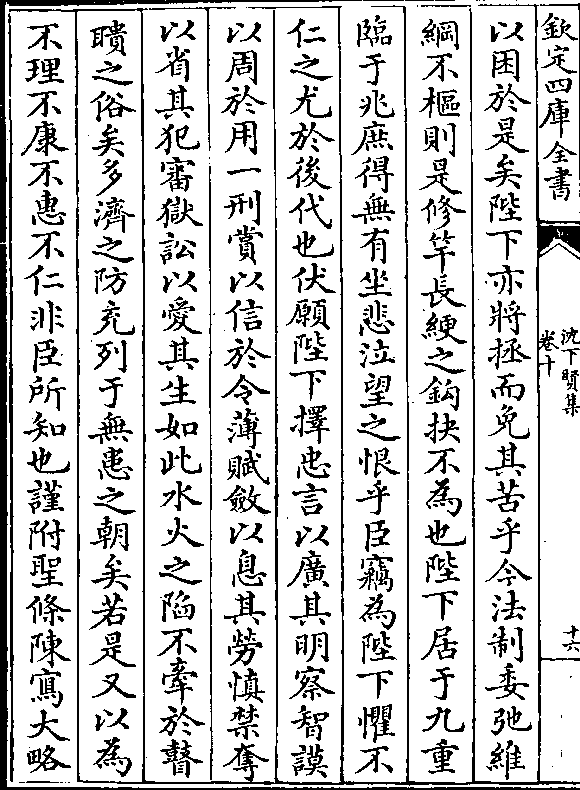 欽定四庫全書
沈下賢集
卷十
十六
以困於是矣陛下亦將拯而免其苦乎今法制委弛維
綱不樞則是修竿長綆之鈎抉不為也陛下居于九重
臨于兆庶得無有坐悲泣望之恨乎臣竊為陛下懼不
仁之尤於後代也伏願陛下擇忠言以廣其明察智謨
以周於用一刑賞以信於令薄賦斂以息其勞慎禁奪
以省其犯審獄訟以愛其生如此水火之陷不牽於瞽
瞶之俗矣多濟之防充列于無恚之朝矣若是又以為
不理不康不惠不仁非臣所知也謹附聖條陳寫大略